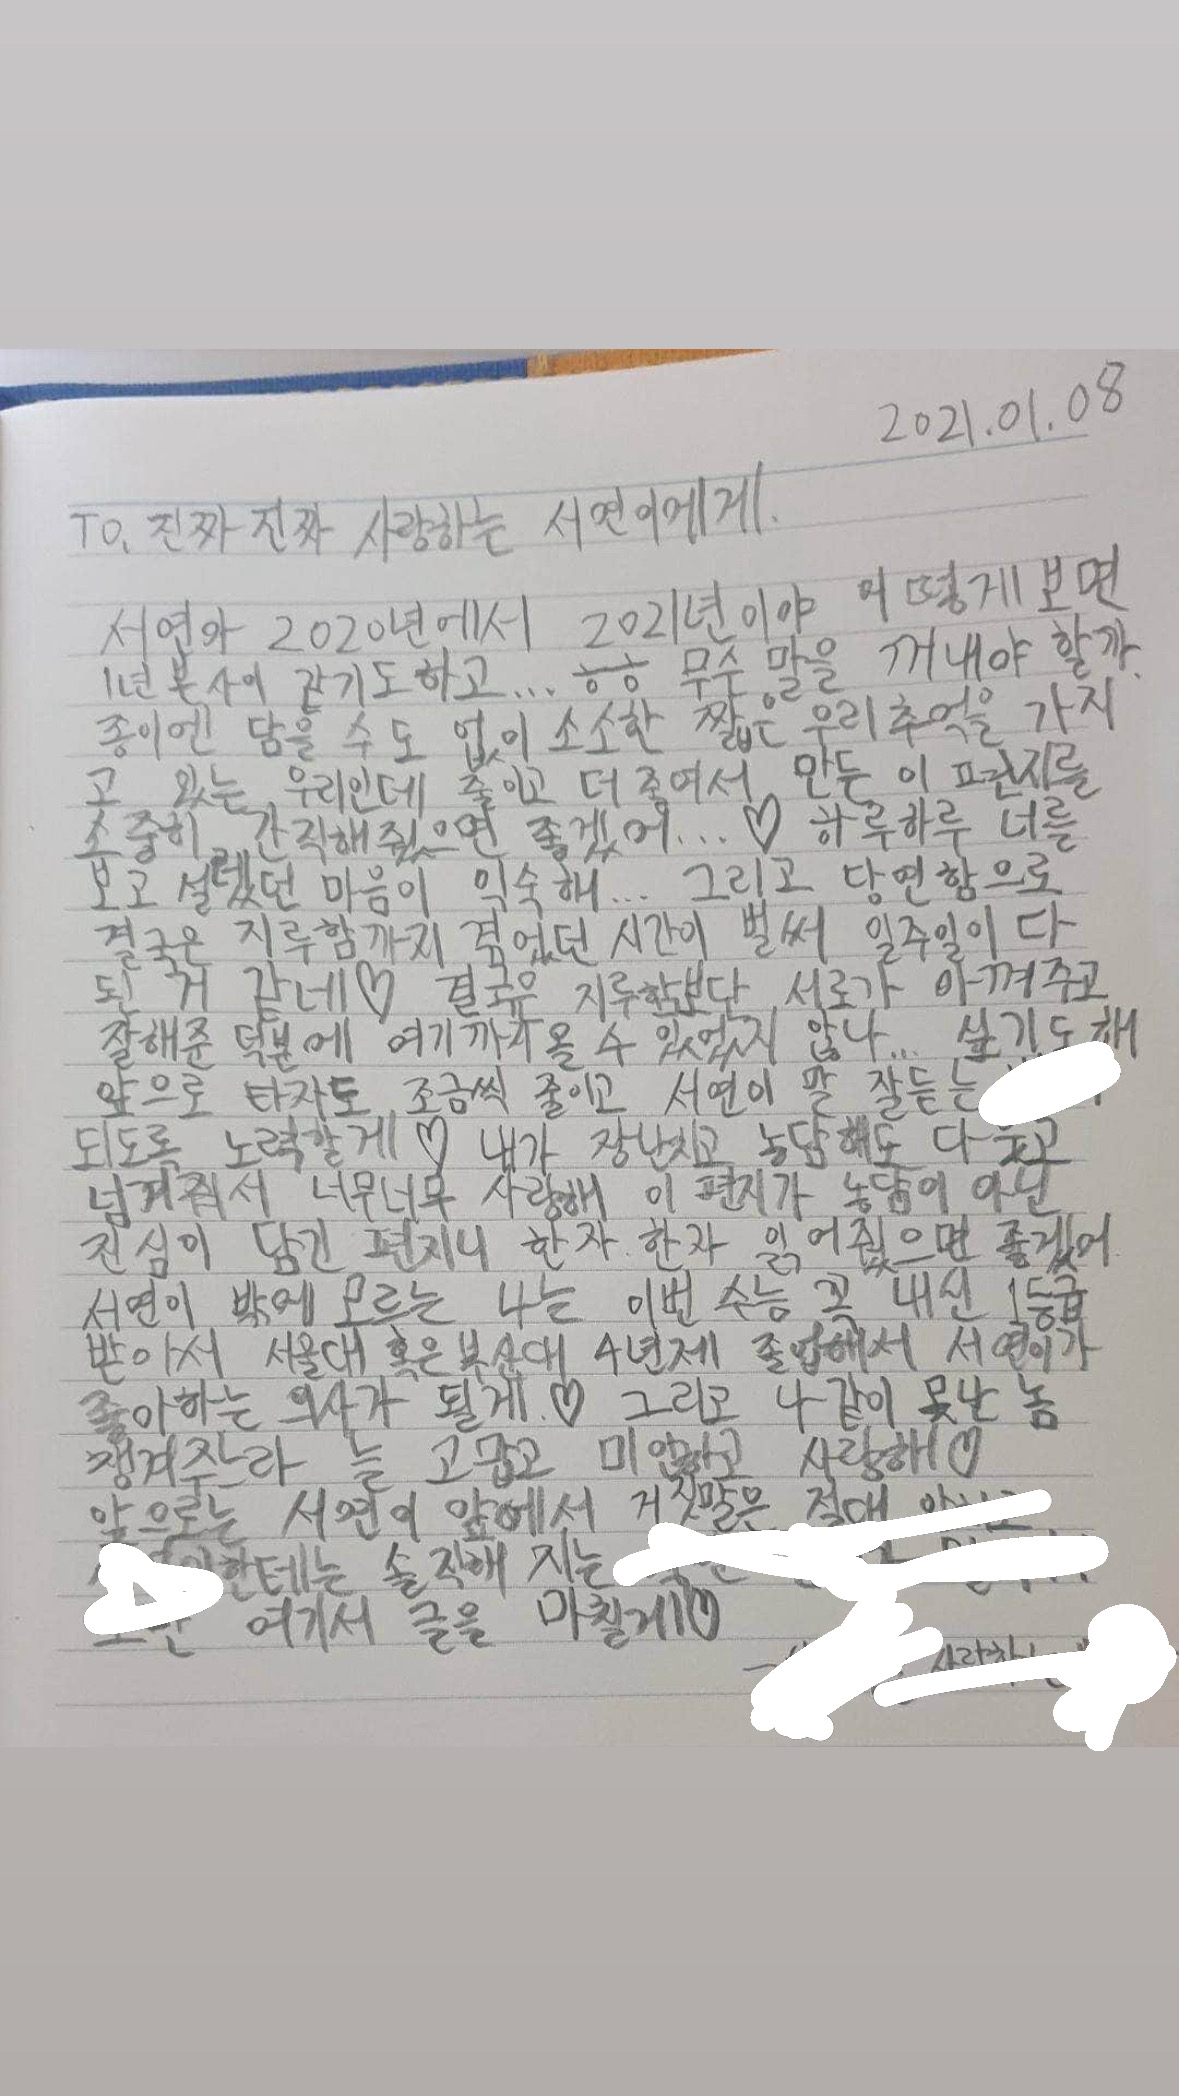 2021.01.08
TO, 진짜 진짜 사랑하는 서연이에게.
서연아 2020년에서 2021년이야 어떻게보면
1년 본 사이 같기도하고... ㅎㅎ 무슨 말을 꺼내야 할까.
종이엔 담을 수도 없이 소소한 짧은 우리추억을 가지
고 있는 우리인데 줄이고 더 줄여서 만든 이 편지를
소중히 간직해줬으면 좋겠어.... ♡ 하루하루 너를
보고 설렜던 마음이 익숙해... 그리고 당연함으로
결국은 지루함까지 겪었던 시간이 벌써 일주일이 다
된 거 같네♡ 결국은 지루함보단 서로가 아껴주고
잘해준 덕분에 여기까지 올 수 있었지 않나... 싶기도해
앞으로 타자도 조금씩 줄이고 서연이 말 잘듣는
되도록 노력할게♡ 내가 장난치고 농담해도 다 웃고
넘겨줘서 너무너무 사랑해 이 편지가 농담이 아닌
진심이 담긴 편지니 한자 한자 읽어줬으면 좋겠어.
서연이 밖에 모르는 나는 이번 수능 꼭 내신 1등급
받아서 서울대 혹은 부산대 4년제 졸업해서 서연이가
좋아하는 의사가 될게.♡ 그리고 나같이 못난 놈
챙겨주느라 늘 고맙고 미안하고 사랑해♡
앞으로는 서연이 앞에서 거짓말은 절대
한테는 솔직해 지는
여기서 글을 마칠게♡